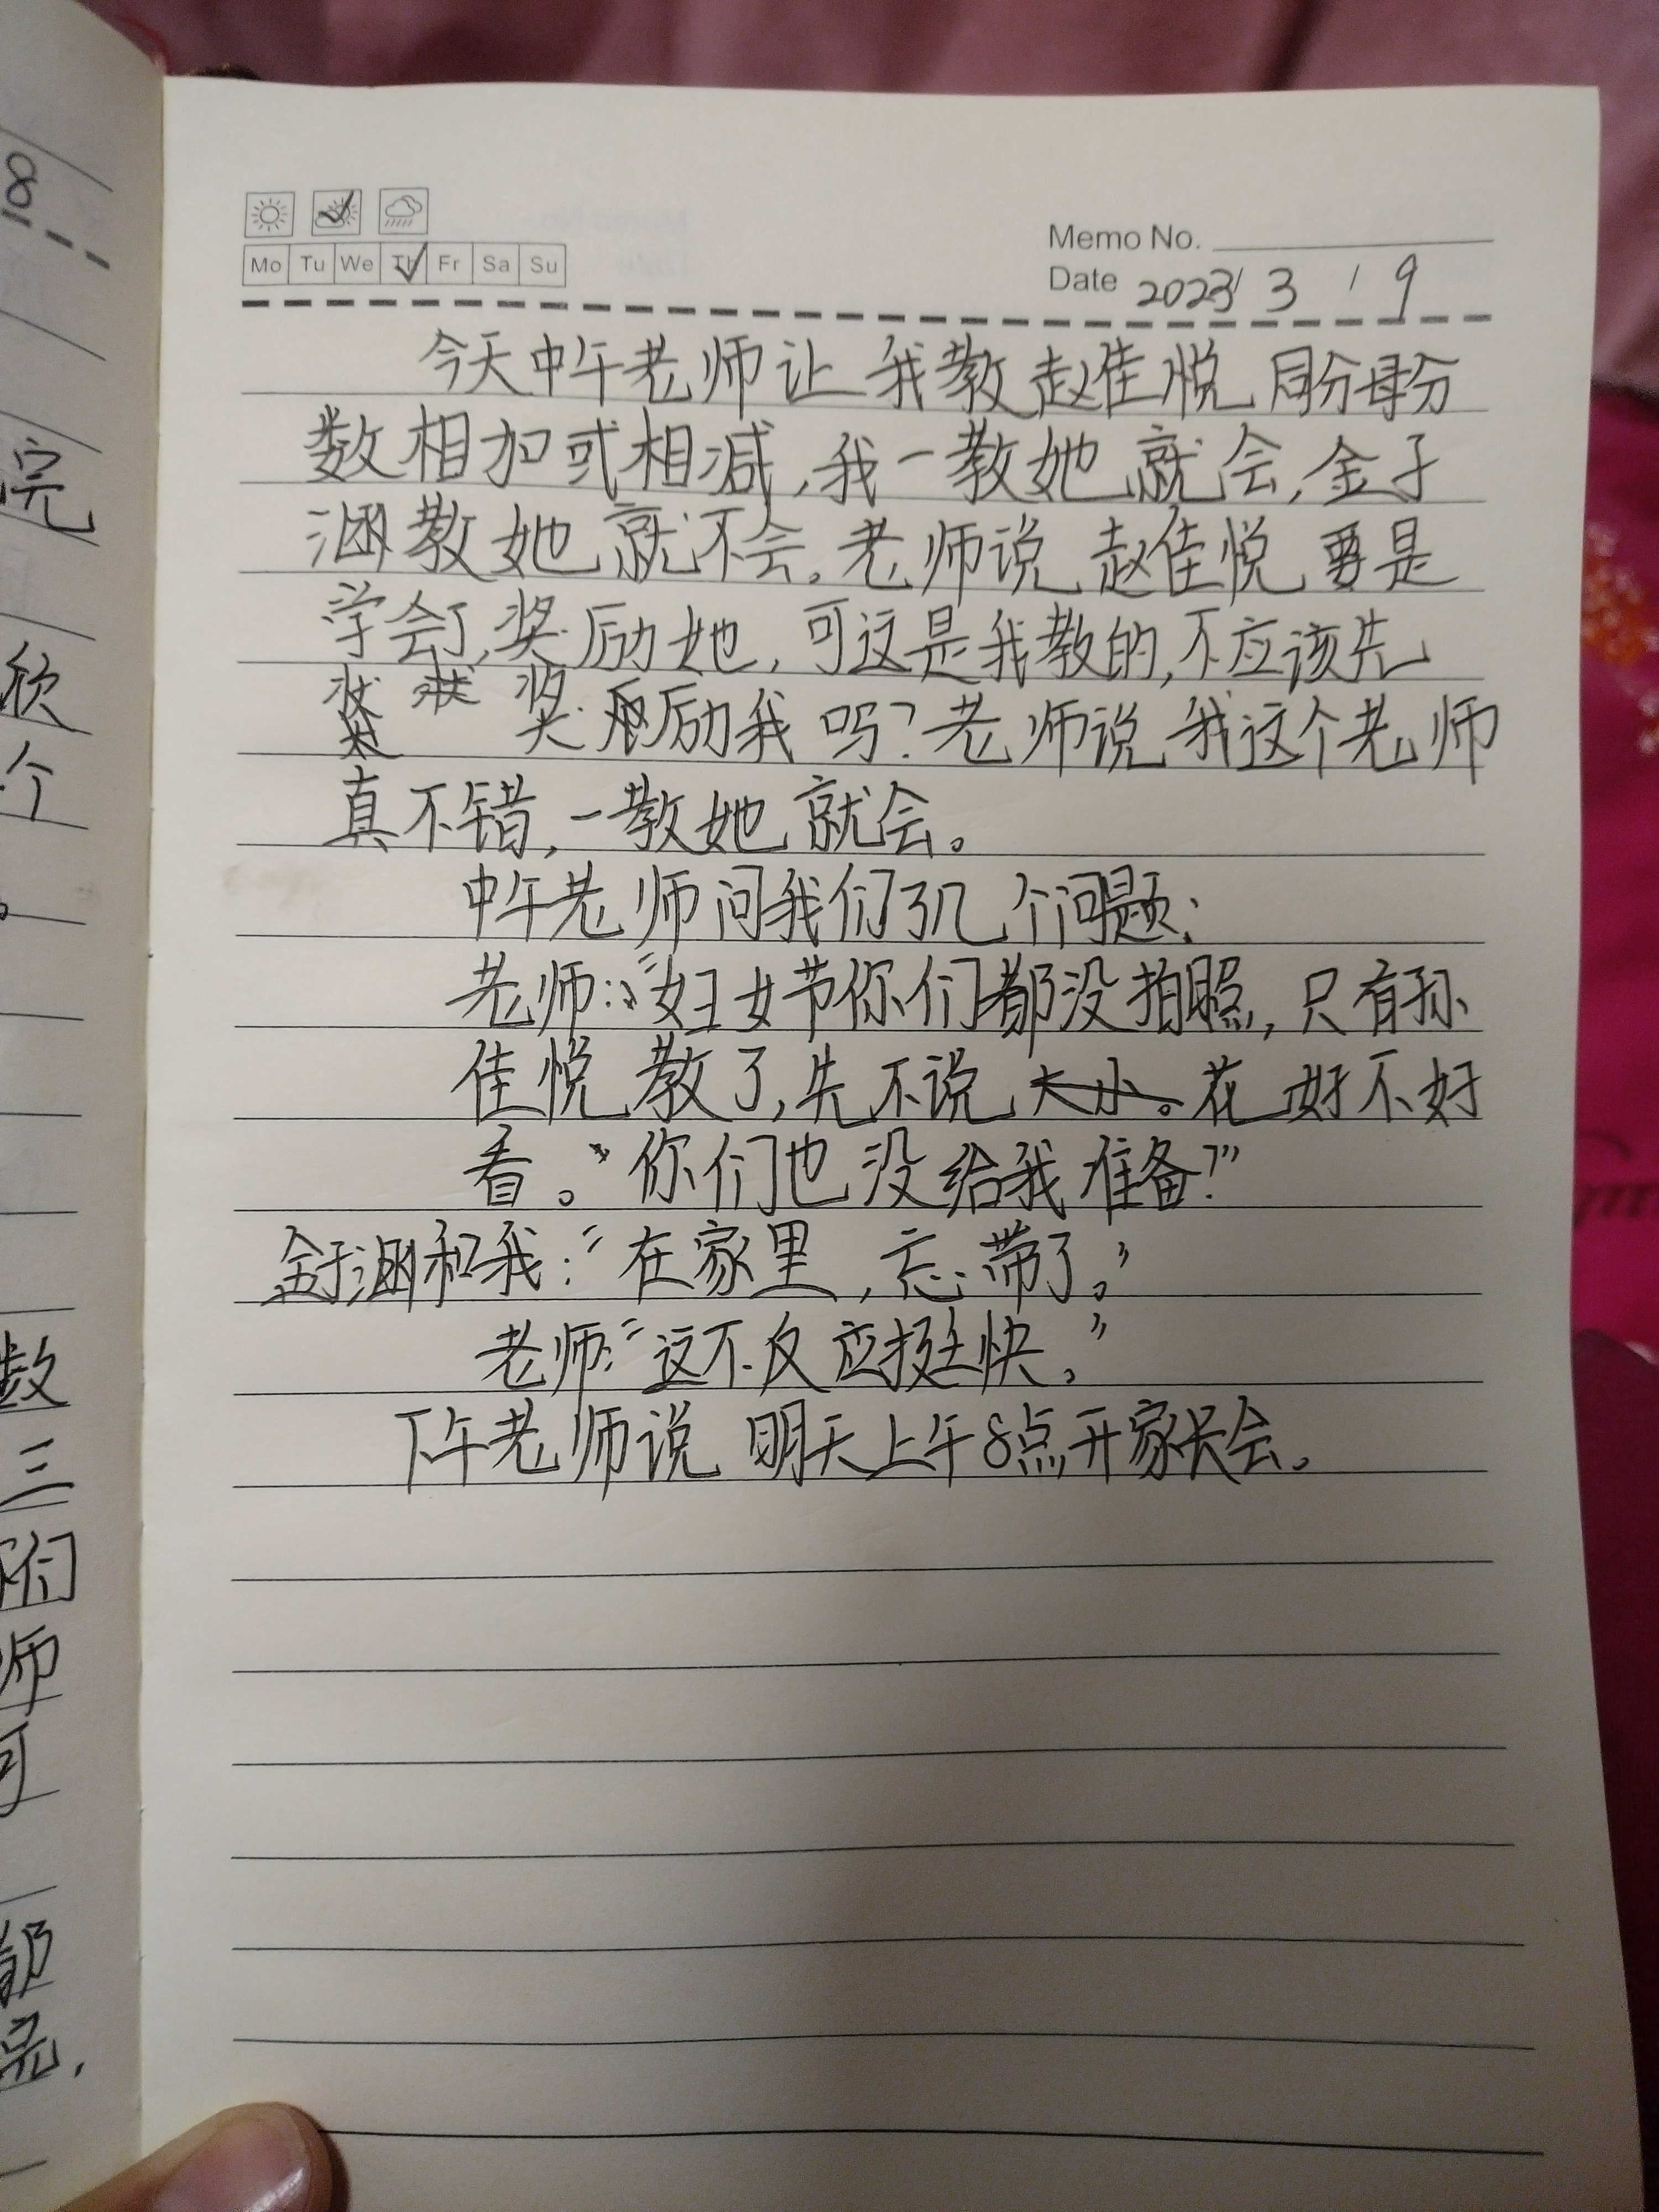 Memo No.
Mo Tu We Th Fr Sa Su
Date 2023/ 3 / 9
今天中午老师让我教赵佳悦同分母分
数相加或相减,我一教她就会,金子
涵教她就不会。老师说赵佳悦要是
学会了,奖励她,可这是我教的,不应该先
奖励我吗?老师说我这个老师
真不错,一教她就会。
中午老师问我们了几个问题:
老师:“妇女节你们都没拍照,只有孙
佳悦教了,先不说大小。花好不好
看。“你们也没给我准备?”
金子涵和我:“在家里,忘带了。”
老师:“这不反应挺快。”
下午老师说明天上午8点开家长会。
18
完
欣
个
数
三
们
师
可
部
完,